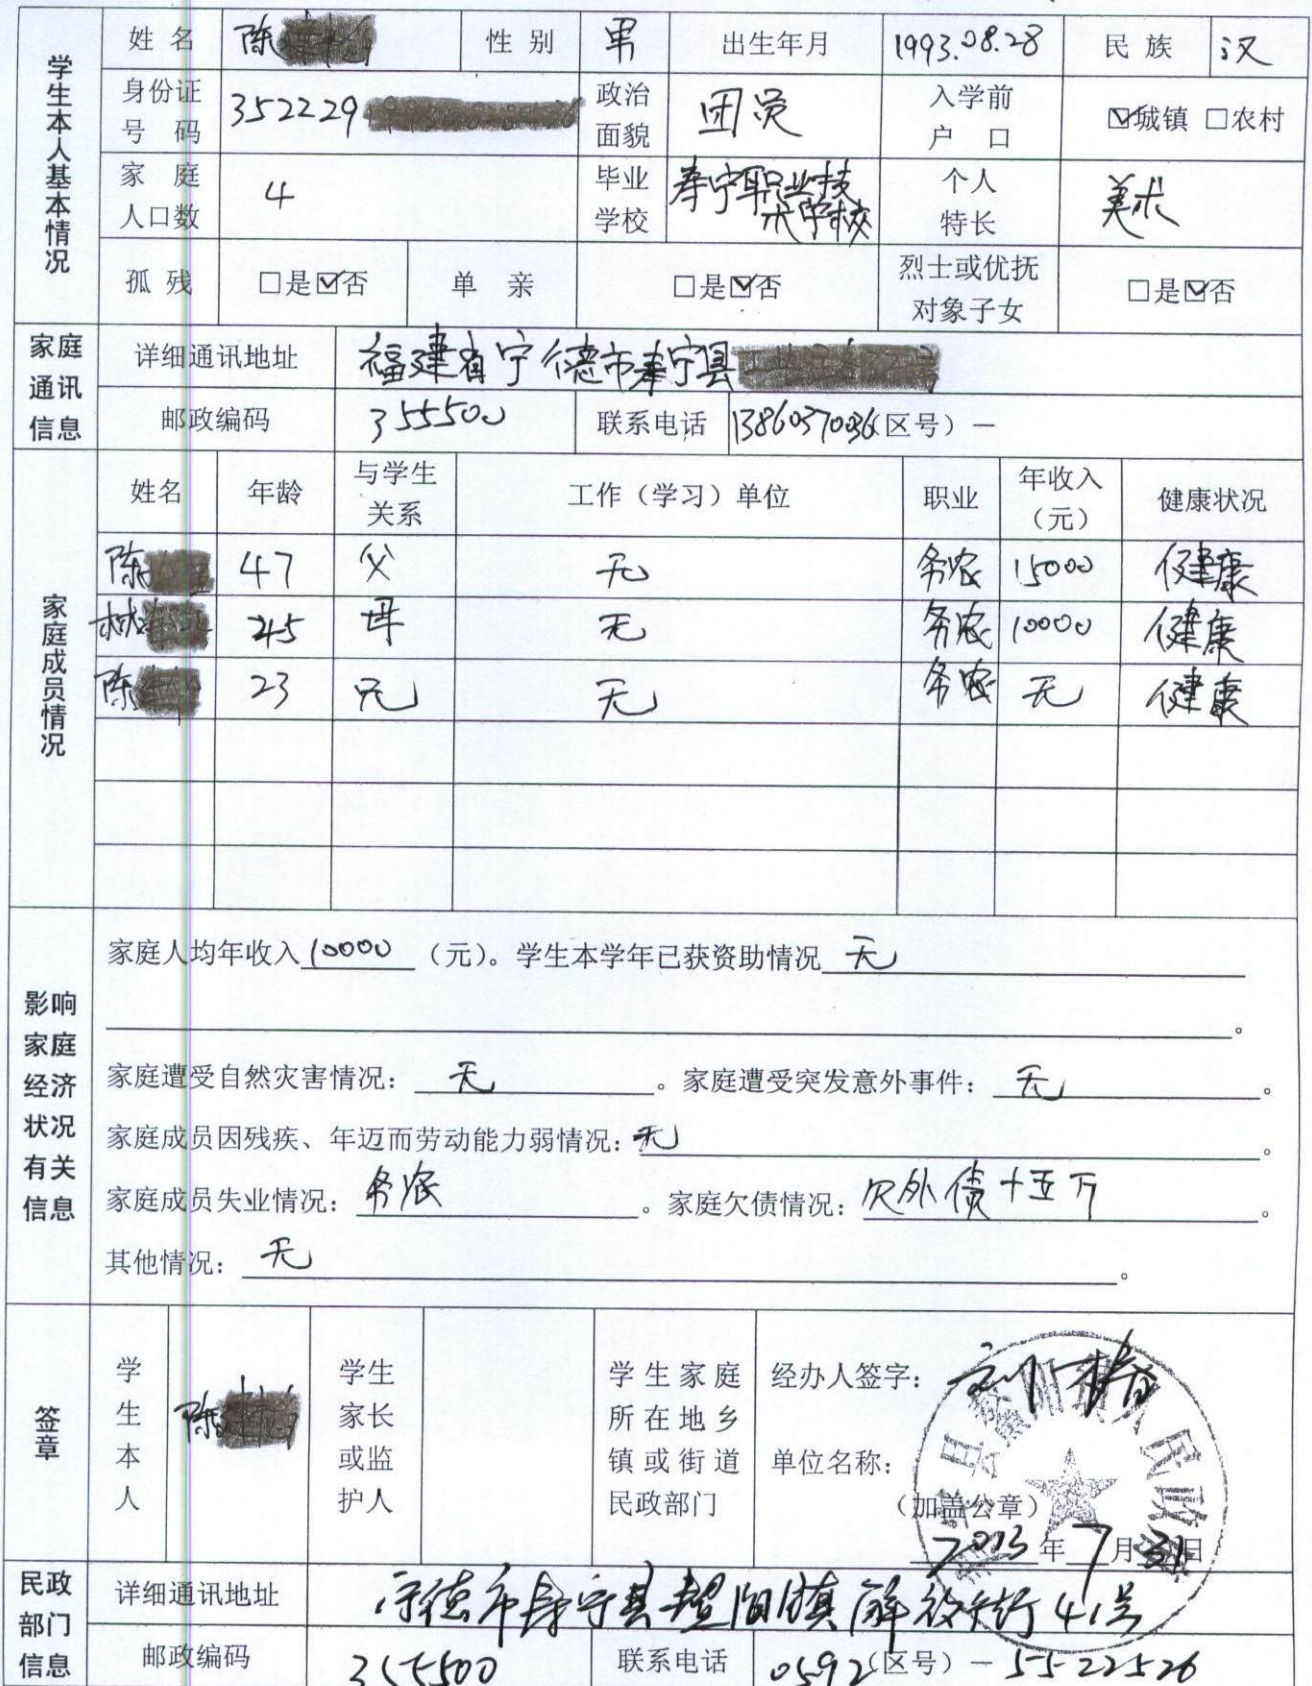 学生本人基本情况
姓 名 陈 性 别 男 出生年月 1993.08.28 民 族 汉
身份证号 码 352229 政治面貌 团员 入学前户 口 ☑城镇 □农村
家 庭人口数 4 毕业学校 寿宁职业技术学校 个人特长 美术
孤 残 □是☑否 单 亲 □是☑否 烈士或优抚对象子女 □是☑否
家庭通讯信息
详细通讯地址 福建省宁德市寿宁县
邮政编码 355500 联系电话 13860370036(区号)－
家庭成员情况
姓名 年龄 与学生关系 工作（学习）单位 职业 年收入（元） 健康状况
陈 47 父 无 务农 15000 健康
林 45 母 无 务农 10000 健康
陈 23 兄 无 务农 无 健康
影响家庭经济状况有关信息
家庭人均年收入 10000 （元）。学生本学年已获资助情况 无
。
家庭遭受自然灾害情况： 无 。家庭遭受突发意外事件： 无 。
家庭成员因残疾、年迈而劳动能力弱情况：无 。
家庭成员失业情况： 务农 。家庭欠债情况：欠外债十五万 。
其他情况： 无 。
签章
学生本人 陈
学生家长或监护人
学生家庭所在地乡镇或街道民政部门
经办人签字：
单位名称：
（加盖公章）
2013 年 7 月 31 日
民政部门信息
详细通讯地址 宁德市寿宁县鳌阳镇解放街41号
邮政编码 355500 联系电话 0592(区号)－5522526